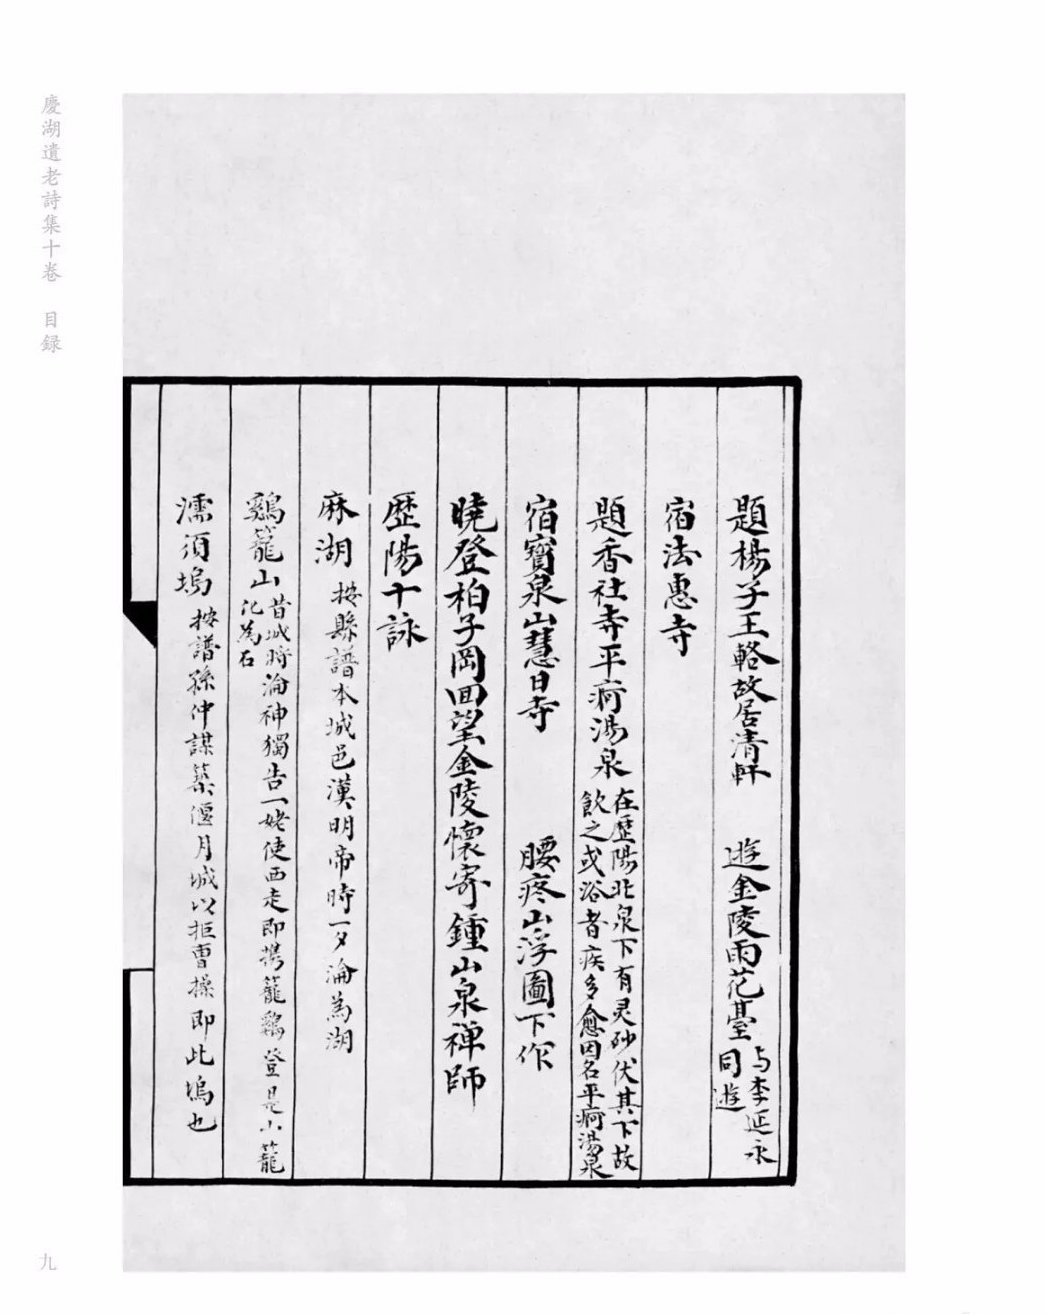 慶湖遺老詩集十卷　目録
題楊子王輅故居清軒　遊金陵雨花臺 与李延永同遊
宿法惠寺
題香社寺平痾湯泉 在歷陽北泉下有灵砂伏其下故飲之或浴者疾多愈因名平痾湯泉
宿寶泉山慧日寺　腰疼山浮圖下作
曉登柏子岡回望金陵懷寄鍾山泉禅師
歷陽十詠
麻湖 按縣譜本城邑漢明帝時一夕淪為湖
鷄籠山 昔城時淪神獨告一姥使西走即携籠鷄登是山籠化為石
濡須塢 按譜孫仲謀築偃月城以拒曹操即此塢也
九